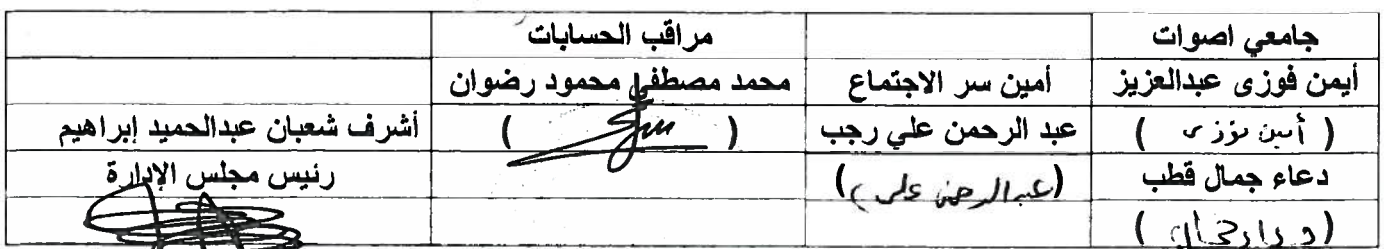 جامعي اصوات مراقب الحسابات
أيمن فوزى عبدالعزيز أمين سر الاجتماع محمد مصطفى محمود رضوان
( أيمن فوزى ) عبد الرحمن علي رجب ( ) أشرف شعبان عبدالحميد إبراهيم
دعاء جمال قطب (عبدالرحمن على) رئيس مجلس الإدارة
(دعاء جمال)